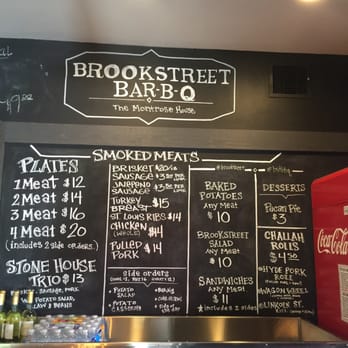 $9.00
BROOKSTREET
BAR-B-Q
The Montrose House
SMOKED MEATS
PLATES
1 Meat $12
2 Meat $14
3 Meat $16
4 Meat $20
(includes 2 side orders)
STONE HOUSE
TRIO $13
Sausage, Pork
w/ Potato Salad,
Slaw & Beans
BRISKET
SAUSAGE
JALAPENO
SAUSAGE
TURKEY $15
BREAST
ST. LOUIS RIBS $14
CHICKEN $14
(WHOLE)
PULLED $14
PORK
side orders
Potato
Salad
Potato
Casserole
Beans
BAKED
POTATOES
Any Meat
$10
BROOKSTREET
SALAD
Any Meat
$10
SANDWICHES
Any Meat
$11
includes 2 sides
DESSERTS
Pecan Pie
$3
CHALLAH
ROLLS
$4.50
HYDE PARK
ROLL
WAGON WHEEL
LINCOLN ST.
Coca-Cola